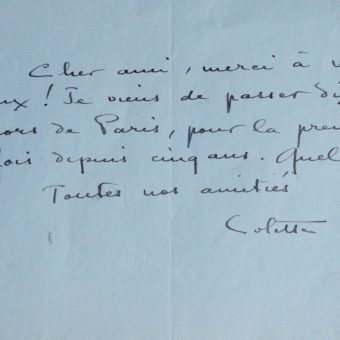 Cher ami, merci à v
ux ! Je viens de passer di
ors de Paris, pour la prem
fois depuis cinq ans. Quel
Toutes nos amitiés
Colette